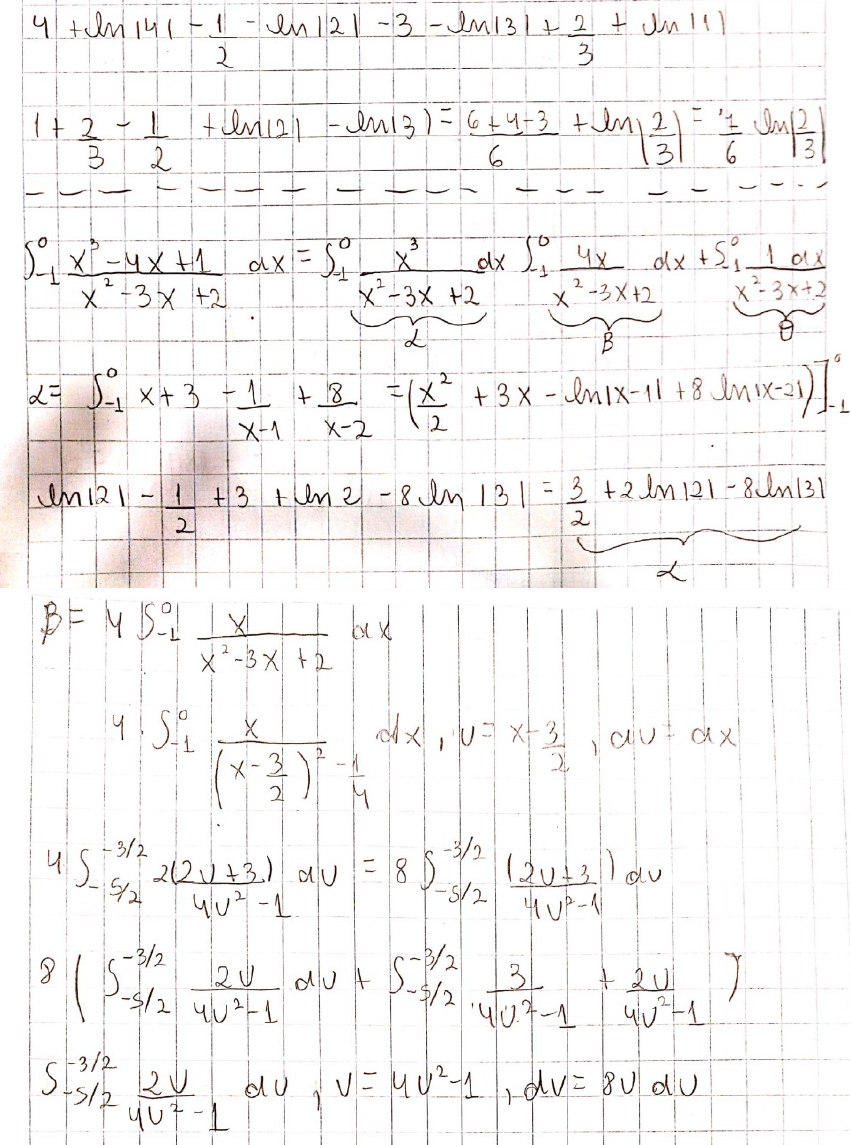 4 + ln|4| - 1/2 - ln|2| - 3 - ln|3| + 2/3 + ln|1|
1 + 2/3 - 1/2 + ln|2| - ln|3| = (6+4-3)/6 + ln|2/3| = 7/6 ln|2/3|
∫₋₁⁰ (x³-4x+1)/(x²-3x+2) dx = ∫₋₁⁰ x³/(x²-3x+2) dx ∫₋₁⁰ 4x/(x²-3x+2) dx + ∫₋₁⁰ 1 dx/(x²-3x+2)
α β θ
α = ∫₋₁⁰ x+3 - 1/(x-1) + 8/(x-2) = (x²/2 + 3x - ln|x-1| + 8 ln|x-2|)]₋₁⁰
ln|2| - 1/2 + 3 + ln 2 - 8 ln|3| = 3/2 + 2 ln|2| - 8 ln|3|
α
β = 4 ∫₋₁⁰ x/(x²-3x+2) dx
4 ∫₋₁⁰ x/((x-3/2)² - 1/4) dx , u = x-3/2 , du = dx
4 ∫₋₅/₂^(-3/2) 2(2u+3)/(4u²-1) du = 8 ∫₋₅/₂^(-3/2) (2u+3)/(4u²-1) du
8 ( ∫₋₅/₂^(-3/2) 2u/(4u²-1) du + ∫₋₅/₂^(-3/2) 3/(4u²-1) + 2u/(4u²-1) )
∫₋₅/₂^(-3/2) 2u/(4u²-1) du , v = 4u²-1 , dv = 8u du